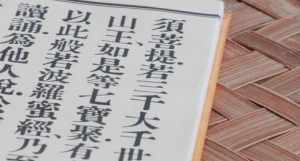 須菩提若三千大千世
山王如是等七寶聚有
以此般若波羅蜜經乃至
讀誦為他人說